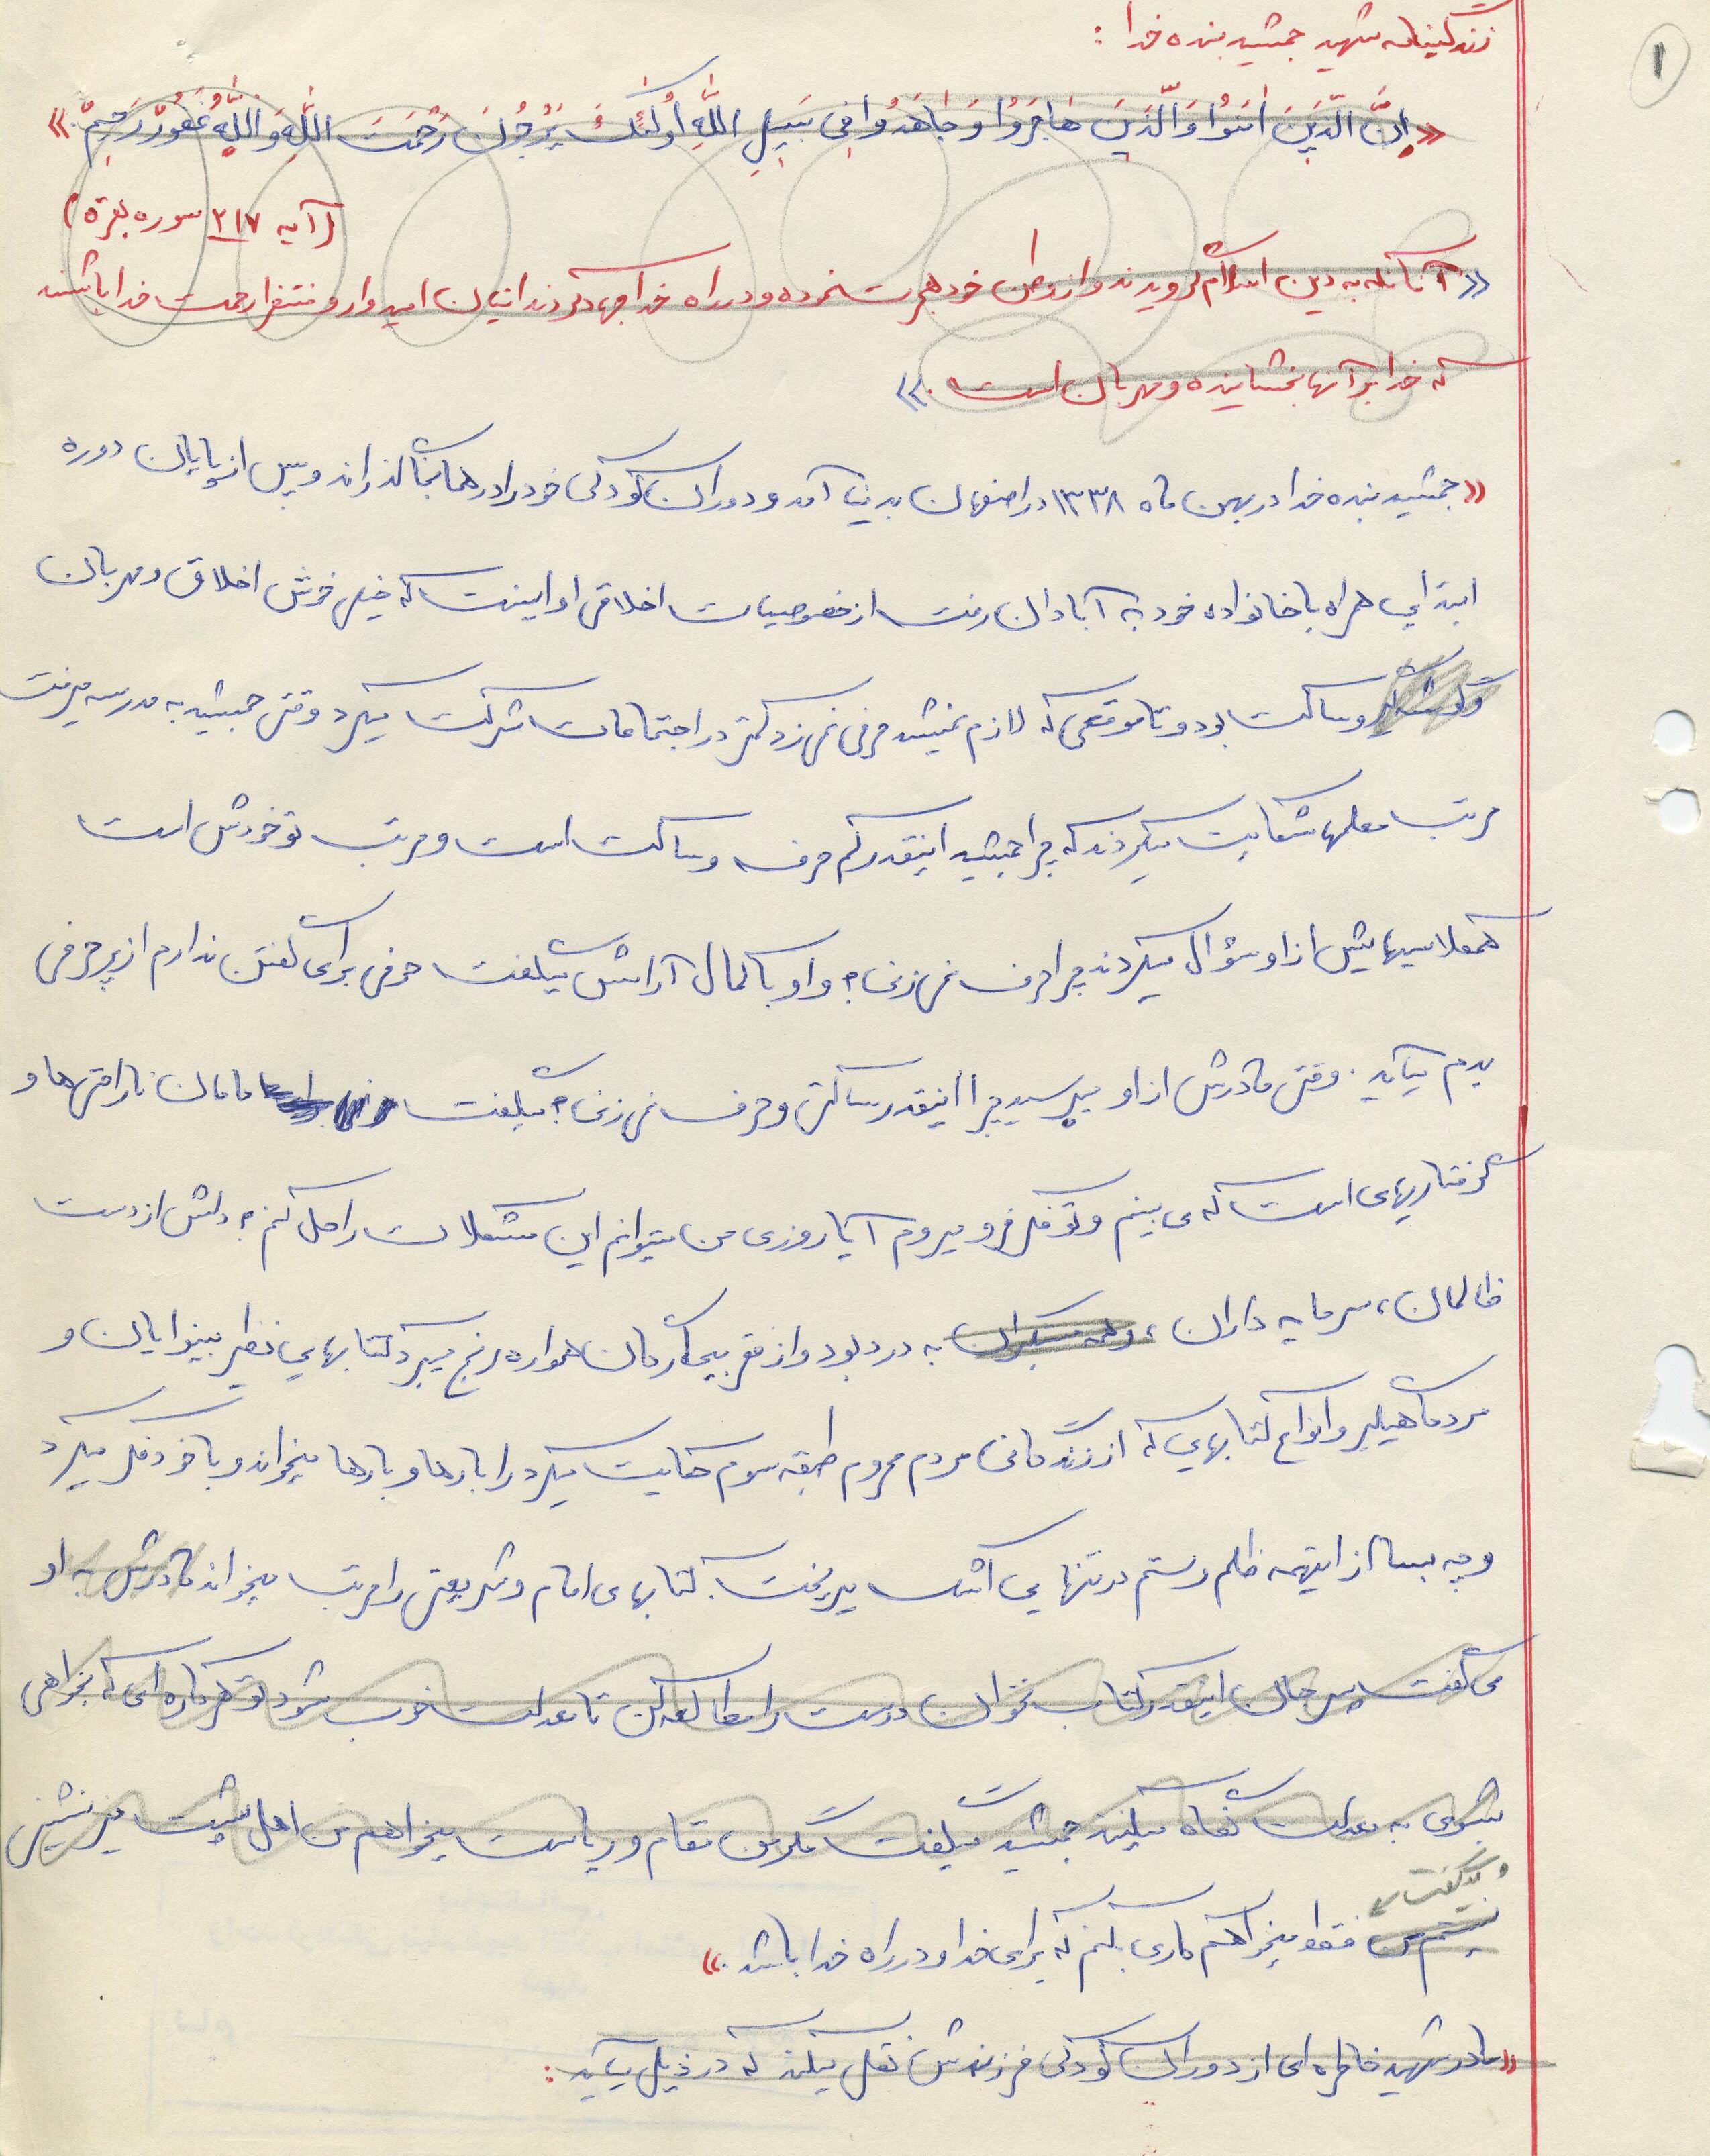 ۱
زندگینامه شهید جمشید بنده خدا :
«اِنَّ الَّذینَ اٰمَنُوا وَالَّذینَ هٰاجَرُوا وَ جٰاهَدُوا فِی سَبیلِ اللّٰهِ اُولٰئِکَ یَرْجُونَ رَحْمَتَ اللّٰهِ وَ اللّٰهُ غَفُورٌ رَحیمٌ.»
(آیه ۲۱۷ سوره بقره)
«آنانکه به دین اسلام گرویدند و از وطن خود هجرت نموده و در راه خدا جهاد کردند اینان امیدوار و منتظر رحمت خدا باشند
که خدا بر آنها بخشاینده و مهربان است.»
«جمشید بنده خدا در بهمن ماه ۱۳۳۸ در اصفهان بدنیا آمد و دوران کودکی خود را در همانجا گذراند و پس از پایان دوره
ابتدایی همراه با خانواده خود به آبادان رفت از خصوصیات اخلاقی او اینست که خیلی خوش اخلاق و مهربان
و ساکت بود و تا موقعی که لازم نمیشد حرفی نمی‌زد کمتر در اجتماعات شرکت میکرد وقتی جمشید به مدرسه میرفت
مرتب معلمها شکایت میکردند که چرا جمشید اینقدر کم حرف و ساکت است و مرتب تو خودش است
همکلاسیهایش از او سؤال میکردند چرا حرف نمی‌زنی؟ و او با کمال آرامش میگفت حرفی برای گفتن ندارم از پر حرفی
بدم میآید. وقتی مادرش از او میپرسید چرا اینقدر ساکتی و حرف نمی‌زنی؟ میگفت مامان ناراحتی‌ها و
گرفتاریهای است که می‌بینم و تو فکر فرو میروم آیا روزی من میتوانم این مشکلات را حل کنم؟ دلش از دست
ظالمان، سرمایه داران، به درد بود و از فقر بیچارگان همواره رنج میبرد کتابهایی نظیر بینوایان و
مرد ماهیگیر و انواع کتابهایی که از زندگانی مردم محروم طبقه سوم حکایت میکرد را بارها و بارها میخواند و با خود فکر میکرد
و چه بسا از اینهمه ظلم و ستم در تنهایی اشک میریخت. کتابهای امام و شریعتی را مرتب میخواند مادرش به او
می گفت پسر جان اینقدر کتاب نخوان درست را مطالعه کن تا معدلت خوب شود تو هر کاره‌ای که بخواهی
بشوی به معدلت نگاه میکنند جمشید میگفت مگر من مقام و ریاست میخواهم من اهل پشت میز نشینی
و میگفت
نیستم من فقط میخواهم کاری بکنم که برای خدا و در راه خدا باشد.»
«مادر شهید خاطره‌ای از دوران کودکی فرزندش نقل میکند که در ذیل میآید: